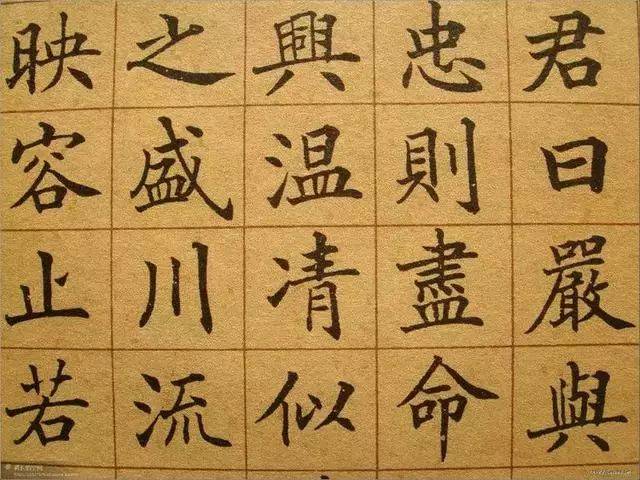 君曰嚴與
忠則盡命
興温凊似
之盛川流
映容止若